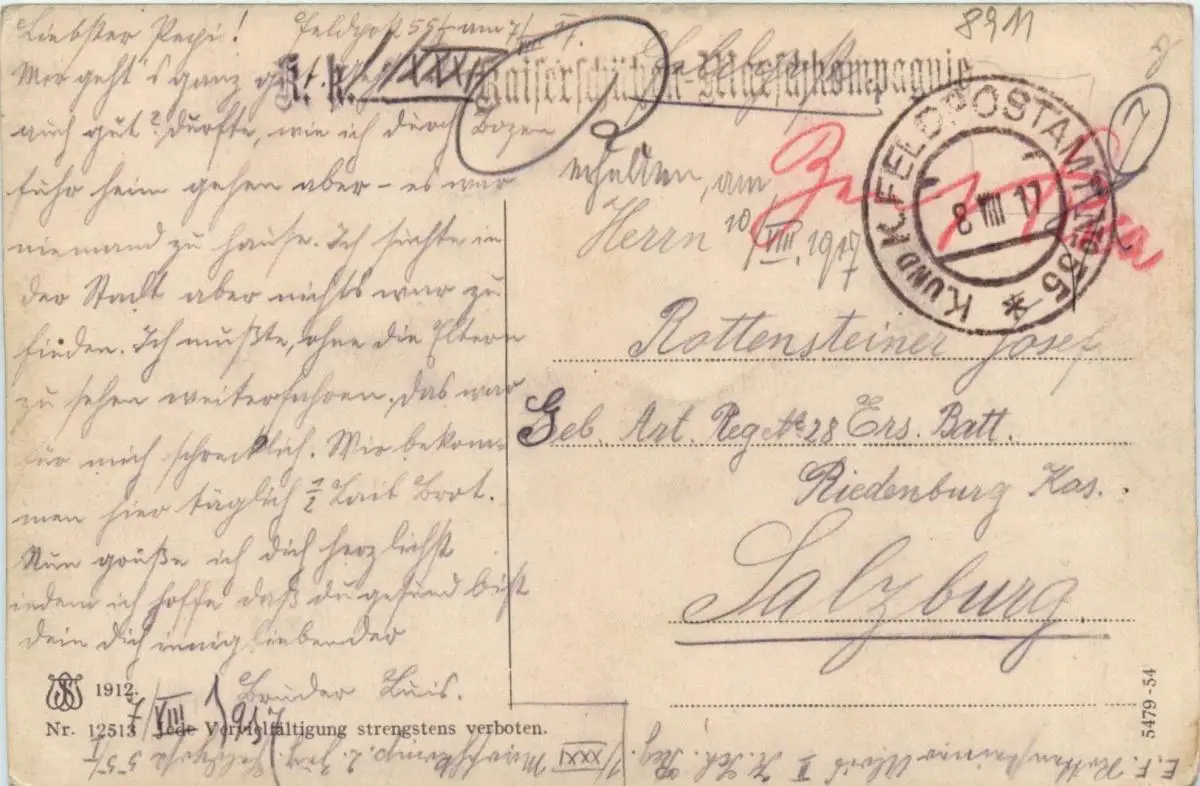 Liebster Pepi! Feldpost 55/I am 7/VIII 17.
Mir geht's ganz gut.
K. k. XXXI Kaiserschützen-Marschkompagnie
auch gut? Durfte, wie ich durch Bozen
fuhr heim gehen aber – es war
niemand zu Hause. Ich suchte in
der Stadt aber nichts war zu
finden. Ich mußte, ohne die Eltern
zu sehen weiterfahren. Das war
für mich schrecklich. Wir bekom-
men hier täglich ½ Laib Brot.
Nun grüße ich dich herzlichst
indem ich hoffe daß du gesund bist
dein dich innig liebender
Bruder Luis.
7/VIII 1917.
1912.
Nr. 12513 Jede Vervielfältigung strengstens verboten.
8911
7
K. UND K. FELDPOSTAMT No 55
8 VIII 17
erhalten, am
10/VIII. 1917
Herrn
Rottensteiner Josef
Geb. Art. Reg. No 28 Ers. Batt.
Riedenburg Kas.
Salzburg
5479-54
E. F. Rottensteiner Alois II K. Sch. Reg.
XXXI Marschkomp. 2. Zug. Feldpost 55/I